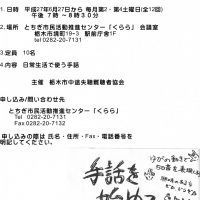 1.日時　平成27年6月27日から 毎月第2・第4土曜日(全12回)
午後 7時～8時30分
2.場所　とちぎ市民活動推進センター「くらら」 会議室
栃木市境町19-3　駅前庁舎1F
tel 0282-20-7131
3定員　10名
4内容　日常生活で使う手話
主催　栃木市中途失聴難聴者協会
申し込み/問い合わせ先
とちぎ市民活動推進センター「くらら」
Tel 0282-20-7131
Fax 0282-20-7132
申し込みの際は 氏名・住所・Fax・電話番号を
明記してください。
手話を
始めて